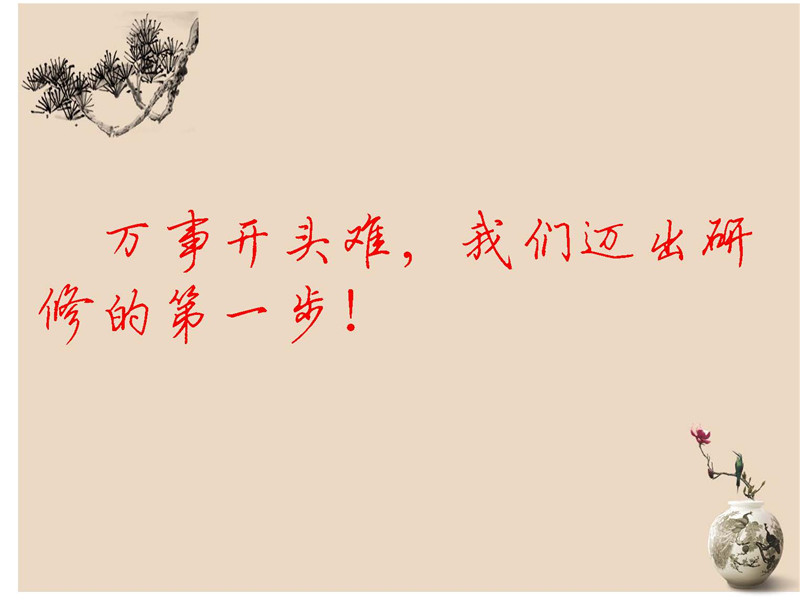 万事开头难，我们迈出研
修的第一步！